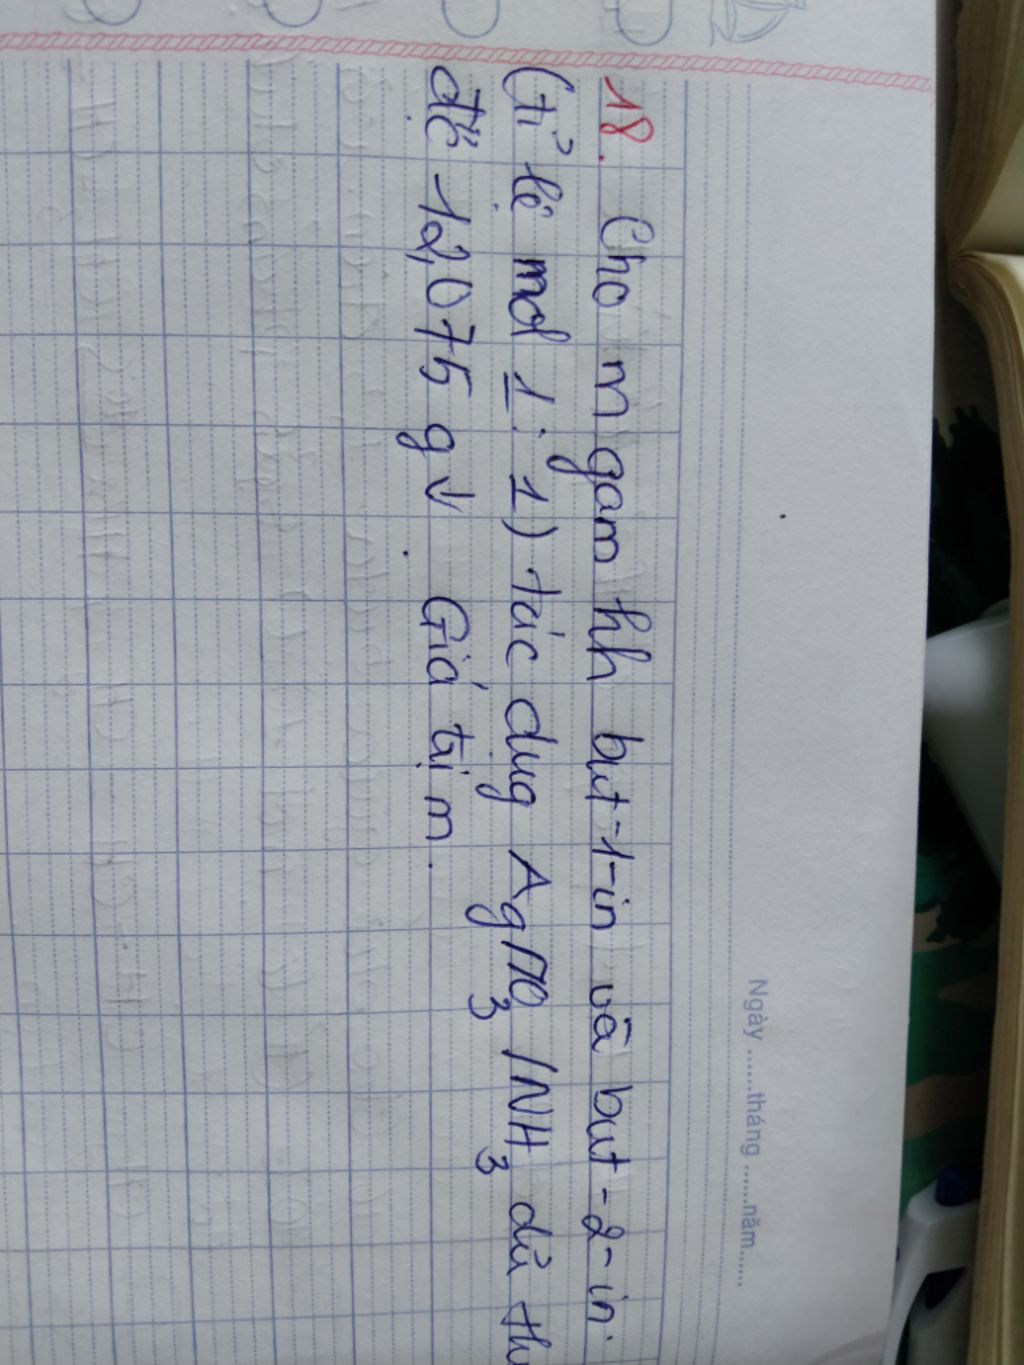 Ngày ......tháng ......năm......
18. Cho m gam hh but-1-in và but-2-in
(tỉ lệ mol 1:1) tác dụg AgNO3 /NH3 dủ thu
đc̣ 12,075 g↓. Giá trị m.